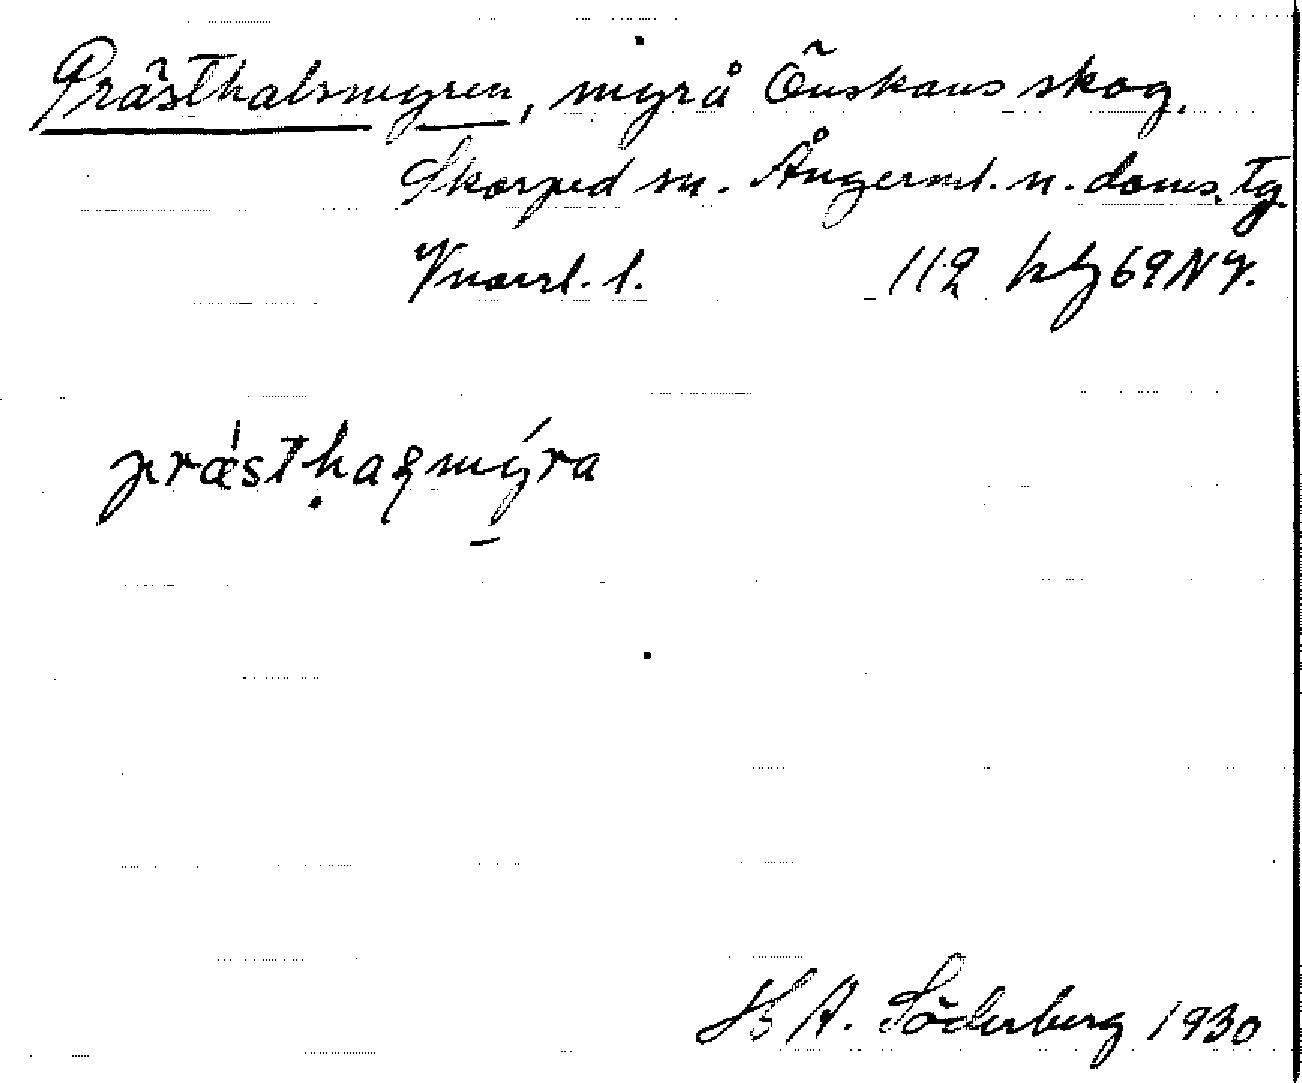 Prästhalsmyren, myr å Önskans skog.
Skorped sn. Ångerml. n. doms. Tg.
Vnorrl. l. 112 hz 69 NV.
præsthaqmýra
H A. Söderberg 1930